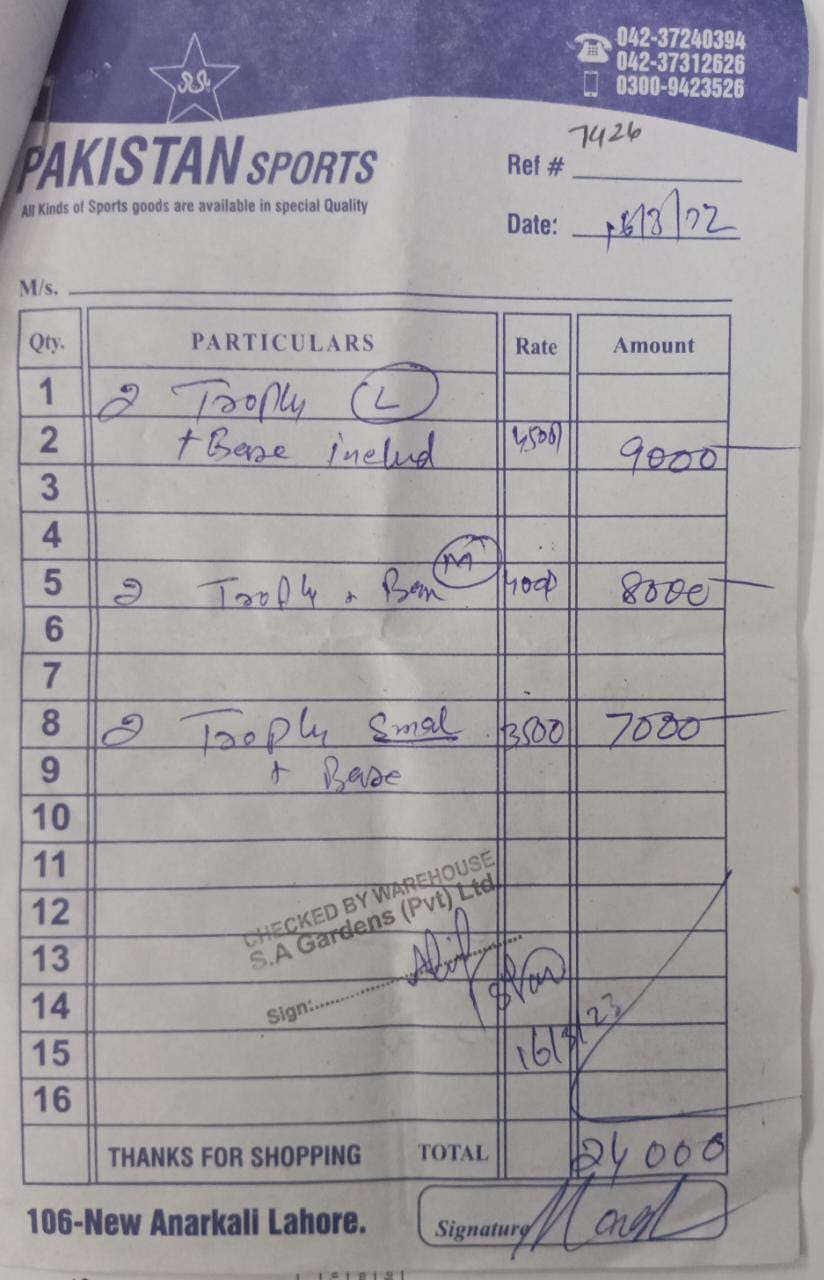 042-37240394
042-37312626
0300-9423526
PAKISTAN SPORTS
All Kinds of Sports goods are available in special Quality
Ref # 7426
Date: 16/3/22
M/s.
Qty. PARTICULARS Rate Amount
1 2 Trophy L
2 + Base includ 4500 9000
3
4
5 2 Trophy + M 4000 8000
6
7
8 2 Trophy Smal 3500 7000
9 + Base
10
11
12
13
14
15
16
CHECKED BY WAREHOUSE
S.A Gardens (Pvt) Ltd
Sign:
16/3/23
THANKS FOR SHOPPING TOTAL 24000
106-New Anarkali Lahore.
Signature